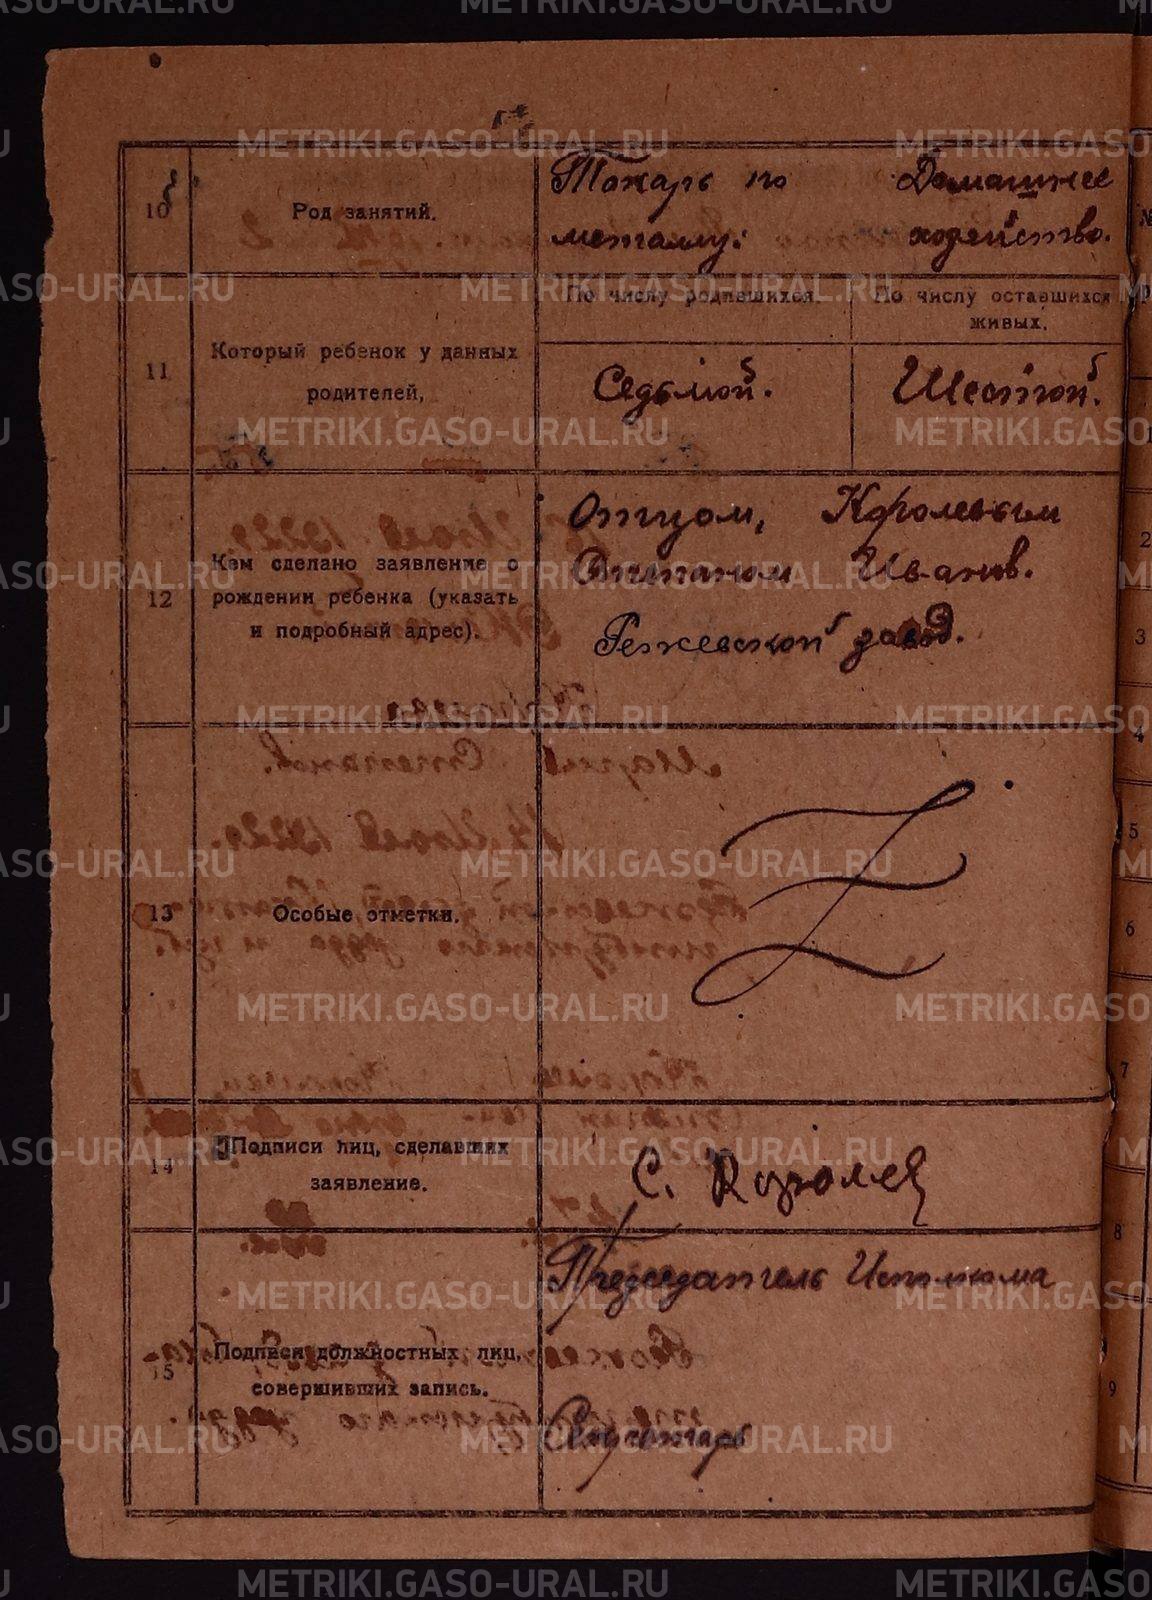 METRIKI.GASO-URAL.RU
10
Род занятий.
Токарь по
металлу.
Домашнее
хозяйство.
11
Который ребенок у данных
родителей,
По числу родившихся
По числу оставшихся
живых.
Седьмой.
Шестой.
12
Кем сделано заявление о
рождении ребенка (указать
и подробный адрес).
Отцом, Королевым
Степаном Иванов.
Режевской завод.
13
Особые отметки.
14
Подписи лиц, сделавших
заявление.
С. Королев
15
Подписи должностных лиц,
совершивших запись.
Председатель Исполкома
Секретарь
2
3
4
5
6
7
8
9